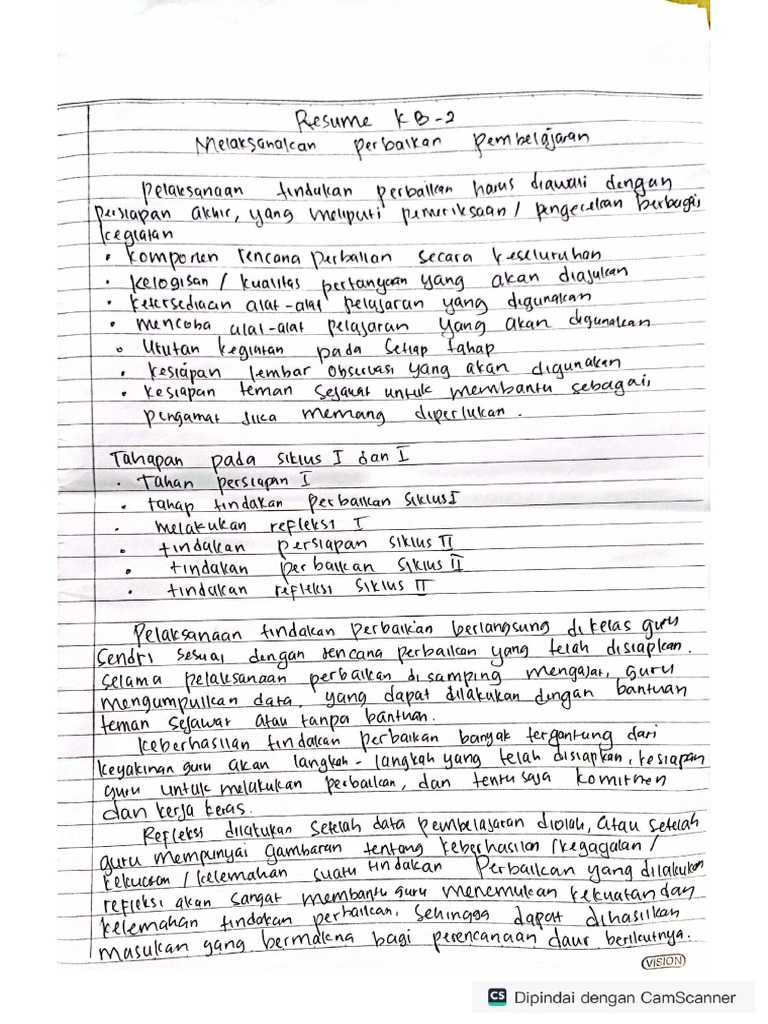 Resume KB-2
Melaksanakan perbaikan pembelajaran
pelaksanaan tindakan perbaikan harus diawali dengan
persiapan akhir, yang meliputi pemeriksaan / pengecekan berbagai
kegiatan
• komponen rencana perbaikan secara keseluruhan
• kelogisan / kualitas pertanyaan yang akan diajukan
• ketersediaan alat-alat pelajaran yang digunakan
• mencoba alat-alat pelajaran yang akan digunakan
• Urutan kegiatan pada setiap tahap
• kesiapan lembar observasi yang akan digunakan
• kesiapan teman sejawat untuk membantu sebagai,
pengamat jika memang diperlukan.
Tahapan pada siklus I dan I
• Tahan persiapan I
• tahap tindakan perbaikan siklus I
• melakukan refleksi I
• tindakan persiapan siklus II
• tindakan perbaikan siklus II
• tindakan refleksi siklus II
Pelaksanaan tindakan perbaikan berlangsung di kelas guru
sendri sesuai dengan rencana perbaikan yang telah disiapkan.
selama pelaksanaan perbaikan di samping mengajar, guru
mengumpulkan data, yang dapat dilakukan dengan bantuan
teman sejawat atau tanpa bantuan.
keberhasilan tindakan perbaikan banyak tergantung dari
keyakinan guru akan langkah-langkah yang telah disiapkan, kesiapan
guru untuk melakukan perbaikan, dan tentu saja komitmen
dan kerja keras.
Refleksi dilakukan setelah data pembelajaran diolah, atau setelah
guru mempunyai gambaran tentang keberhasilan / kegagalan /
kekuatan / kelemahan suatu tindakan perbaikan yang dilakukan
refleksi akan sangat membantu guru menemukan kekuatan dan
kelemahan tindakan perbaikan, sehingga dapat dihasilkan
masukan yang bermakna bagi perencanaan daur berikutnya.
VISION
CS Dipindai dengan CamScanner